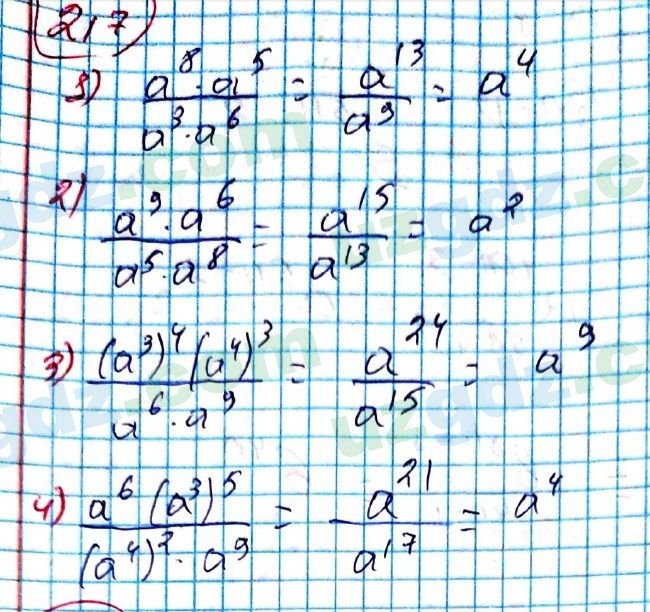 217
1) (a^8 · a^5)/(a^3 · a^6) = a^13/a^9 = a^4
2) (a^9 · a^6)/(a^5 · a^8) = a^15/a^13 = a^2
3) ((a^3)^4 (a^4)^3)/(a^6 · a^9) = a^24/a^15 = a^9
4) (a^6 (a^3)^5)/((a^4)^2 · a^9) = a^21/a^17 = a^4
uzgdz.com